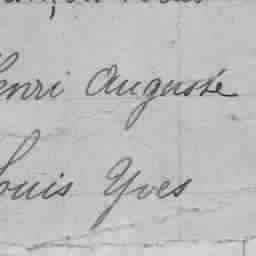 enri Auguste
Louis Yves